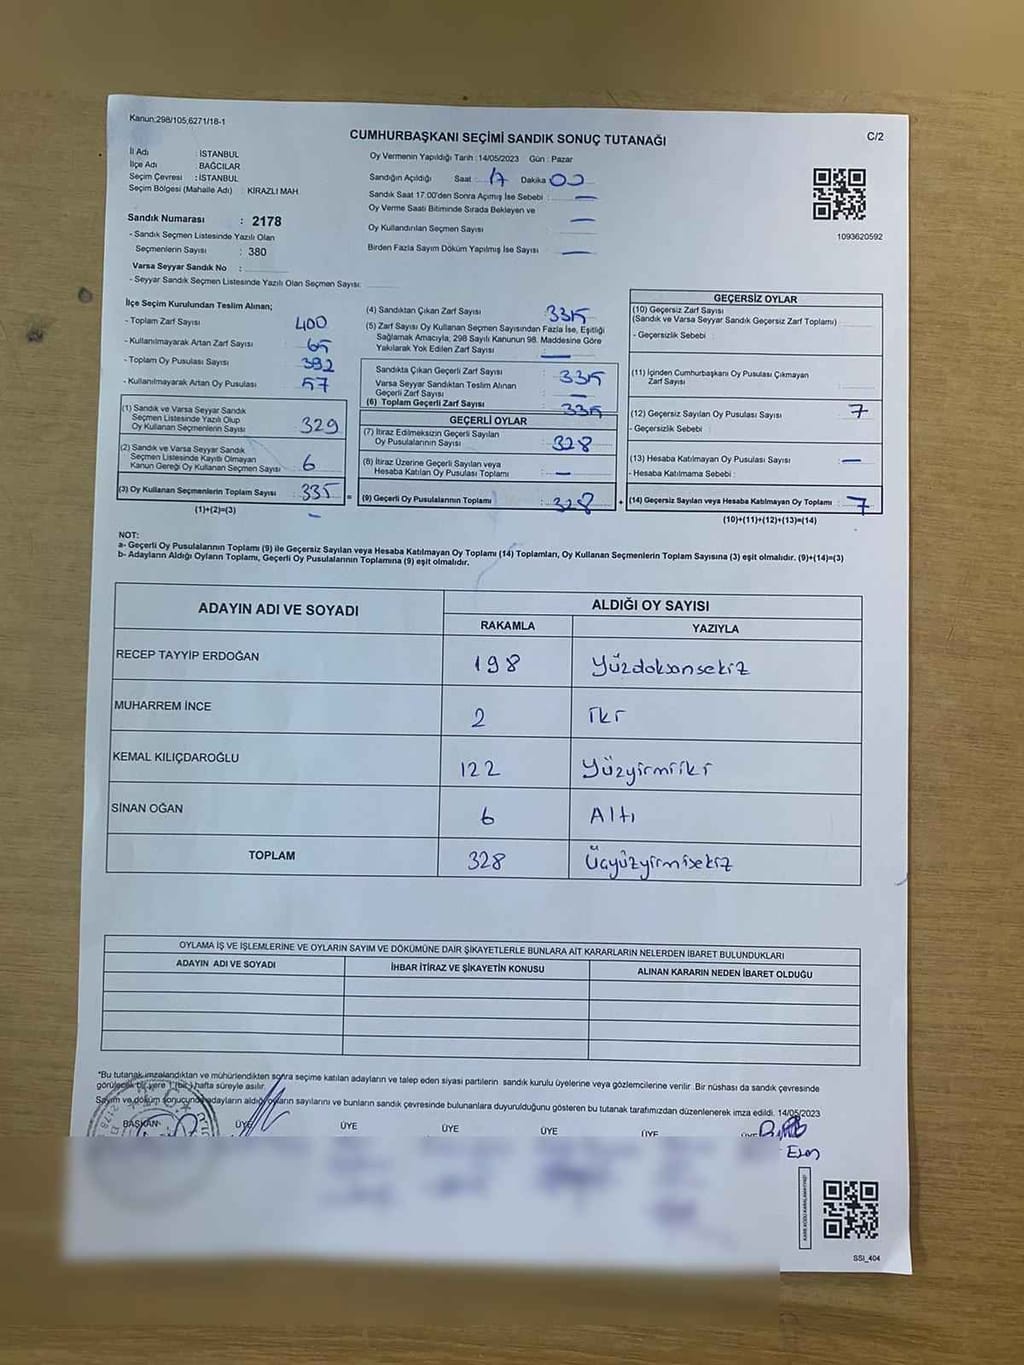 Kanun:298/105,6271/18-1
CUMHURBAŞKANI SEÇİMİ SANDIK SONUÇ TUTANAĞI
C/2
İl Adı : İSTANBUL
İlçe Adı : BAĞCILAR
Seçim Çevresi : İSTANBUL
Seçim Bölgesi (Mahalle Adı) : KİRAZLI MAH.
Sandık Numarası : 2178
- Sandık Seçmen Listesinde Yazılı Olan
Seçmenlerin Sayısı : 380
Varsa Seyyar Sandık No :
- Seyyar Sandık Seçmen Listesinde Yazılı Olan Seçmen Sayısı:
Oy Vermenin Yapıldığı Tarih : 14/05/2023 Gün : Pazar
Sandığın Açıldığı Saat : 17 Dakika : 00
Sandık Saat 17.00'den Sonra Açılmış İse Sebebi : —
Oy Verme Saati Bitiminde Sırada Bekleyen ve
Oy Kullandırılan Seçmen Sayısı : —
Birden Fazla Sayım Döküm Yapılmış İse Sayısı : —
1093620592
İlçe Seçim Kurulundan Teslim Alınan;
- Toplam Zarf Sayısı : 400
- Kullanılmayarak Artan Zarf Sayısı : 65
- Toplam Oy Pusulası Sayısı : 392
- Kullanılmayarak Artan Oy Pusulası : 57
(1) Sandık ve Varsa Seyyar Sandık
Seçmen Listesinde Yazılı Olup
Oy Kullanan Seçmenlerin Sayısı : 329
(2) Sandık ve Varsa Seyyar Sandık
Seçmen Listesinde Kayıtlı Olmayan
Kanun Gereği Oy Kullanan Seçmen Sayısı : 6
(3) Oy Kullanan Seçmenlerin Toplam Sayısı : 335 =
(1)+(2)=(3) —
(4) Sandıktan Çıkan Zarf Sayısı : 335
(5) Zarf Sayısı Oy Kullanan Seçmen Sayısından Fazla İse, Eşitliği
Sağlamak Amacıyla, 298 Sayılı Kanunun 98. Maddesine Göre
Yakılarak Yok Edilen Zarf Sayısı : —
Sandıkta Çıkan Geçerli Zarf Sayısı : 335
Varsa Seyyar Sandıktan Teslim Alınan
Geçerli Zarf Sayısı : —
(6) Toplam Geçerli Zarf Sayısı : 335
GEÇERLİ OYLAR
(7) İtiraz Edilmeksizin Geçerli Sayılan
Oy Pusulalarının Sayısı : 328
(8) İtiraz Üzerine Geçerli Sayılan veya
Hesaba Katılan Oy Pusulası Toplamı : —
(9) Geçerli Oy Pusulalarının Toplamı : 328 +
GEÇERSİZ OYLAR
(10) Geçersiz Zarf Sayısı
(Sandık ve Varsa Seyyar Sandık Geçersiz Zarf Toplamı) :
- Geçersizlik Sebebi :
(11) İçinden Cumhurbaşkanı Oy Pusulası Çıkmayan
Zarf Sayısı :
(12) Geçersiz Sayılan Oy Pusulası Sayısı : 7
- Geçersizlik Sebebi :
(13) Hesaba Katılmayan Oy Pusulası Sayısı : —
- Hesaba Katılmama Sebebi :
(14) Geçersiz Sayılan veya Hesaba Katılmayan Oy Toplamı : 7
(10)+(11)+(12)+(13)=(14)
NOT:
a- Geçerli Oy Pusulalarının Toplamı (9) ile Geçersiz Sayılan veya Hesaba Katılmayan Oy Toplamı (14) Toplamları, Oy Kullanan Seçmenlerin Toplam Sayısına (3) eşit olmalıdır. (9)+(14)=(3)
b- Adayların Aldığı Oyların Toplamı, Geçerli Oy Pusulalarının Toplamına (9) eşit olmalıdır.
ADAYIN ADI VE SOYADI
ALDIĞI OY SAYISI
RAKAMLA YAZIYLA
RECEP TAYYİP ERDOĞAN 198 Yüzdoksansekiz
MUHARREM İNCE 2 İki
KEMAL KILIÇDAROĞLU 122 Yüzyirmiiki
SİNAN OĞAN 6 Altı
TOPLAM 328 Üçyüzyirmisekiz
OYLAMA İŞ VE İŞLEMLERİNE VE OYLARIN SAYIM VE DÖKÜMÜNE DAİR ŞİKAYETLERLE BUNLARA AİT KARARLARIN NELERDEN İBARET BULUNDUKLARI
ADAYIN ADI VE SOYADI İHBAR İTİRAZ VE ŞİKAYETİN KONUSU ALINAN KARARIN NEDEN İBARET OLDUĞU
*Bu tutanak,imzalandıktan ve mühürlendikten sonra seçime katılan adayların ve talep eden siyasi partilerin sandık kurulu üyelerine veya gözlemcilerine verilir. Bir nüshası da sandık çevresinde
görülecek bir yere 1 (bir) hafta süreyle asılır.
Sayım ve döküm sonucunda adayların aldığı oyların sayılarını ve bunların sandık çevresinde bulunanlara duyurulduğunu gösteren bu tutanak tarafımızdan düzenlenerek imza edildi. 14/05/2023
BAŞKAN ÜYE ÜYE ÜYE ÜYE ÜYE ÜYE
SSİ_404